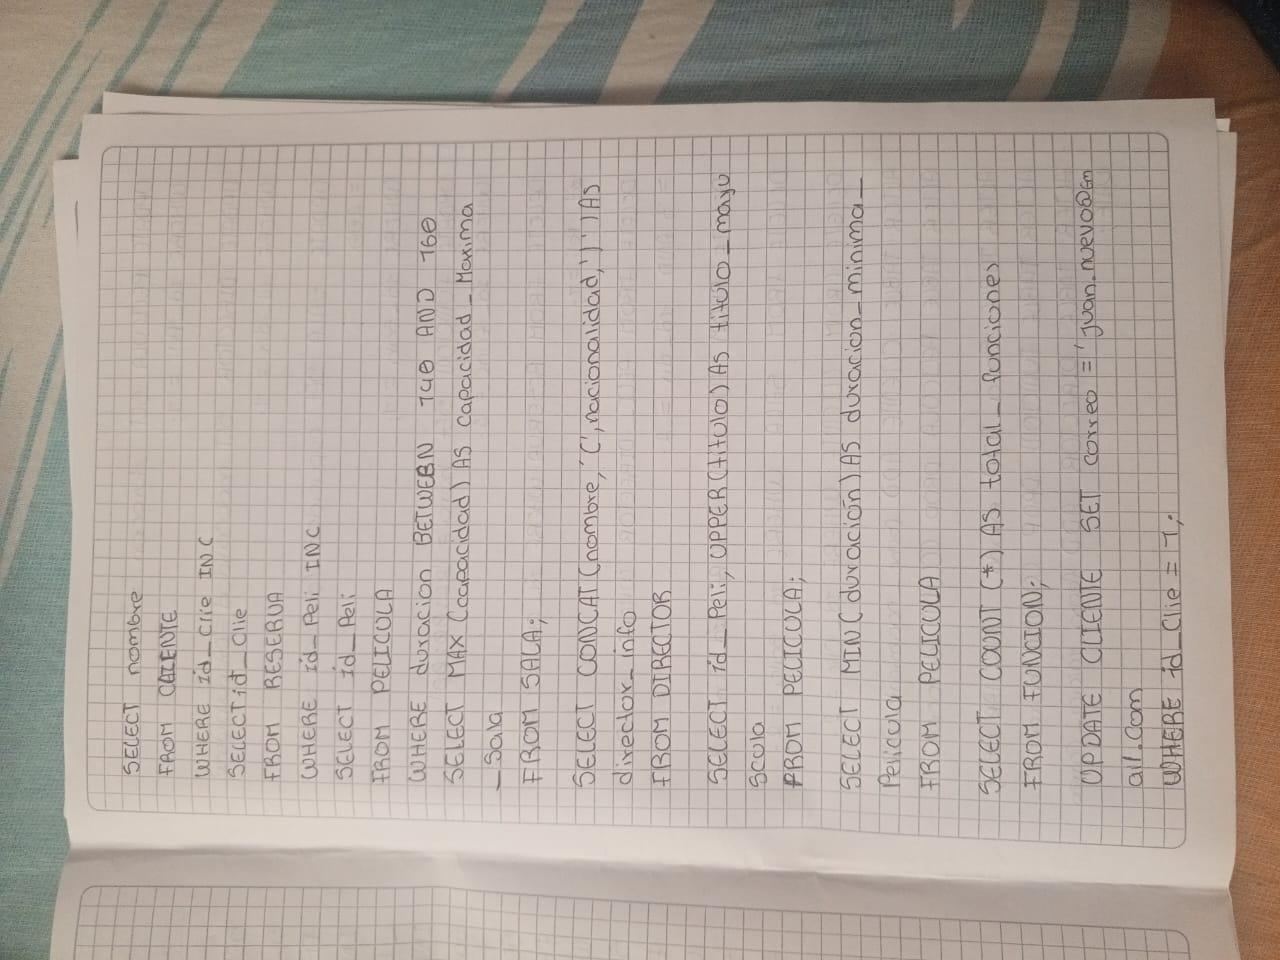 SELECT nombre
FROM CLIENTE
WHERE id_Clie IN C
SELECT id_Clie
FROM RESERVA
WHERE id_Peli IN C
SELECT id_Peli
FROM PELICULA
WHERE duracion BETWEEN 140 AND 160
SELECT MAX (capacidad) AS capacidad_Maxima
_Sala
FROM SALA;
SELECT CONCAT (nombre, 'C', nacionalidad, ')') AS
director_info
FROM DIRECTOR
SELECT id_Peli, UPPER (titulo) AS titulo_mayu
scula
FROM PELICULA;
SELECT MIN (duración) AS duracion_minima_
Pelicula
FROM PELICULA
SELECT COUNT (*) AS total_funciones
FROM FUNCION;
UPDATE CLIENTE SET correo = 'juan.nuevo@gm
ail.com
WHERE id_Clie = 1;